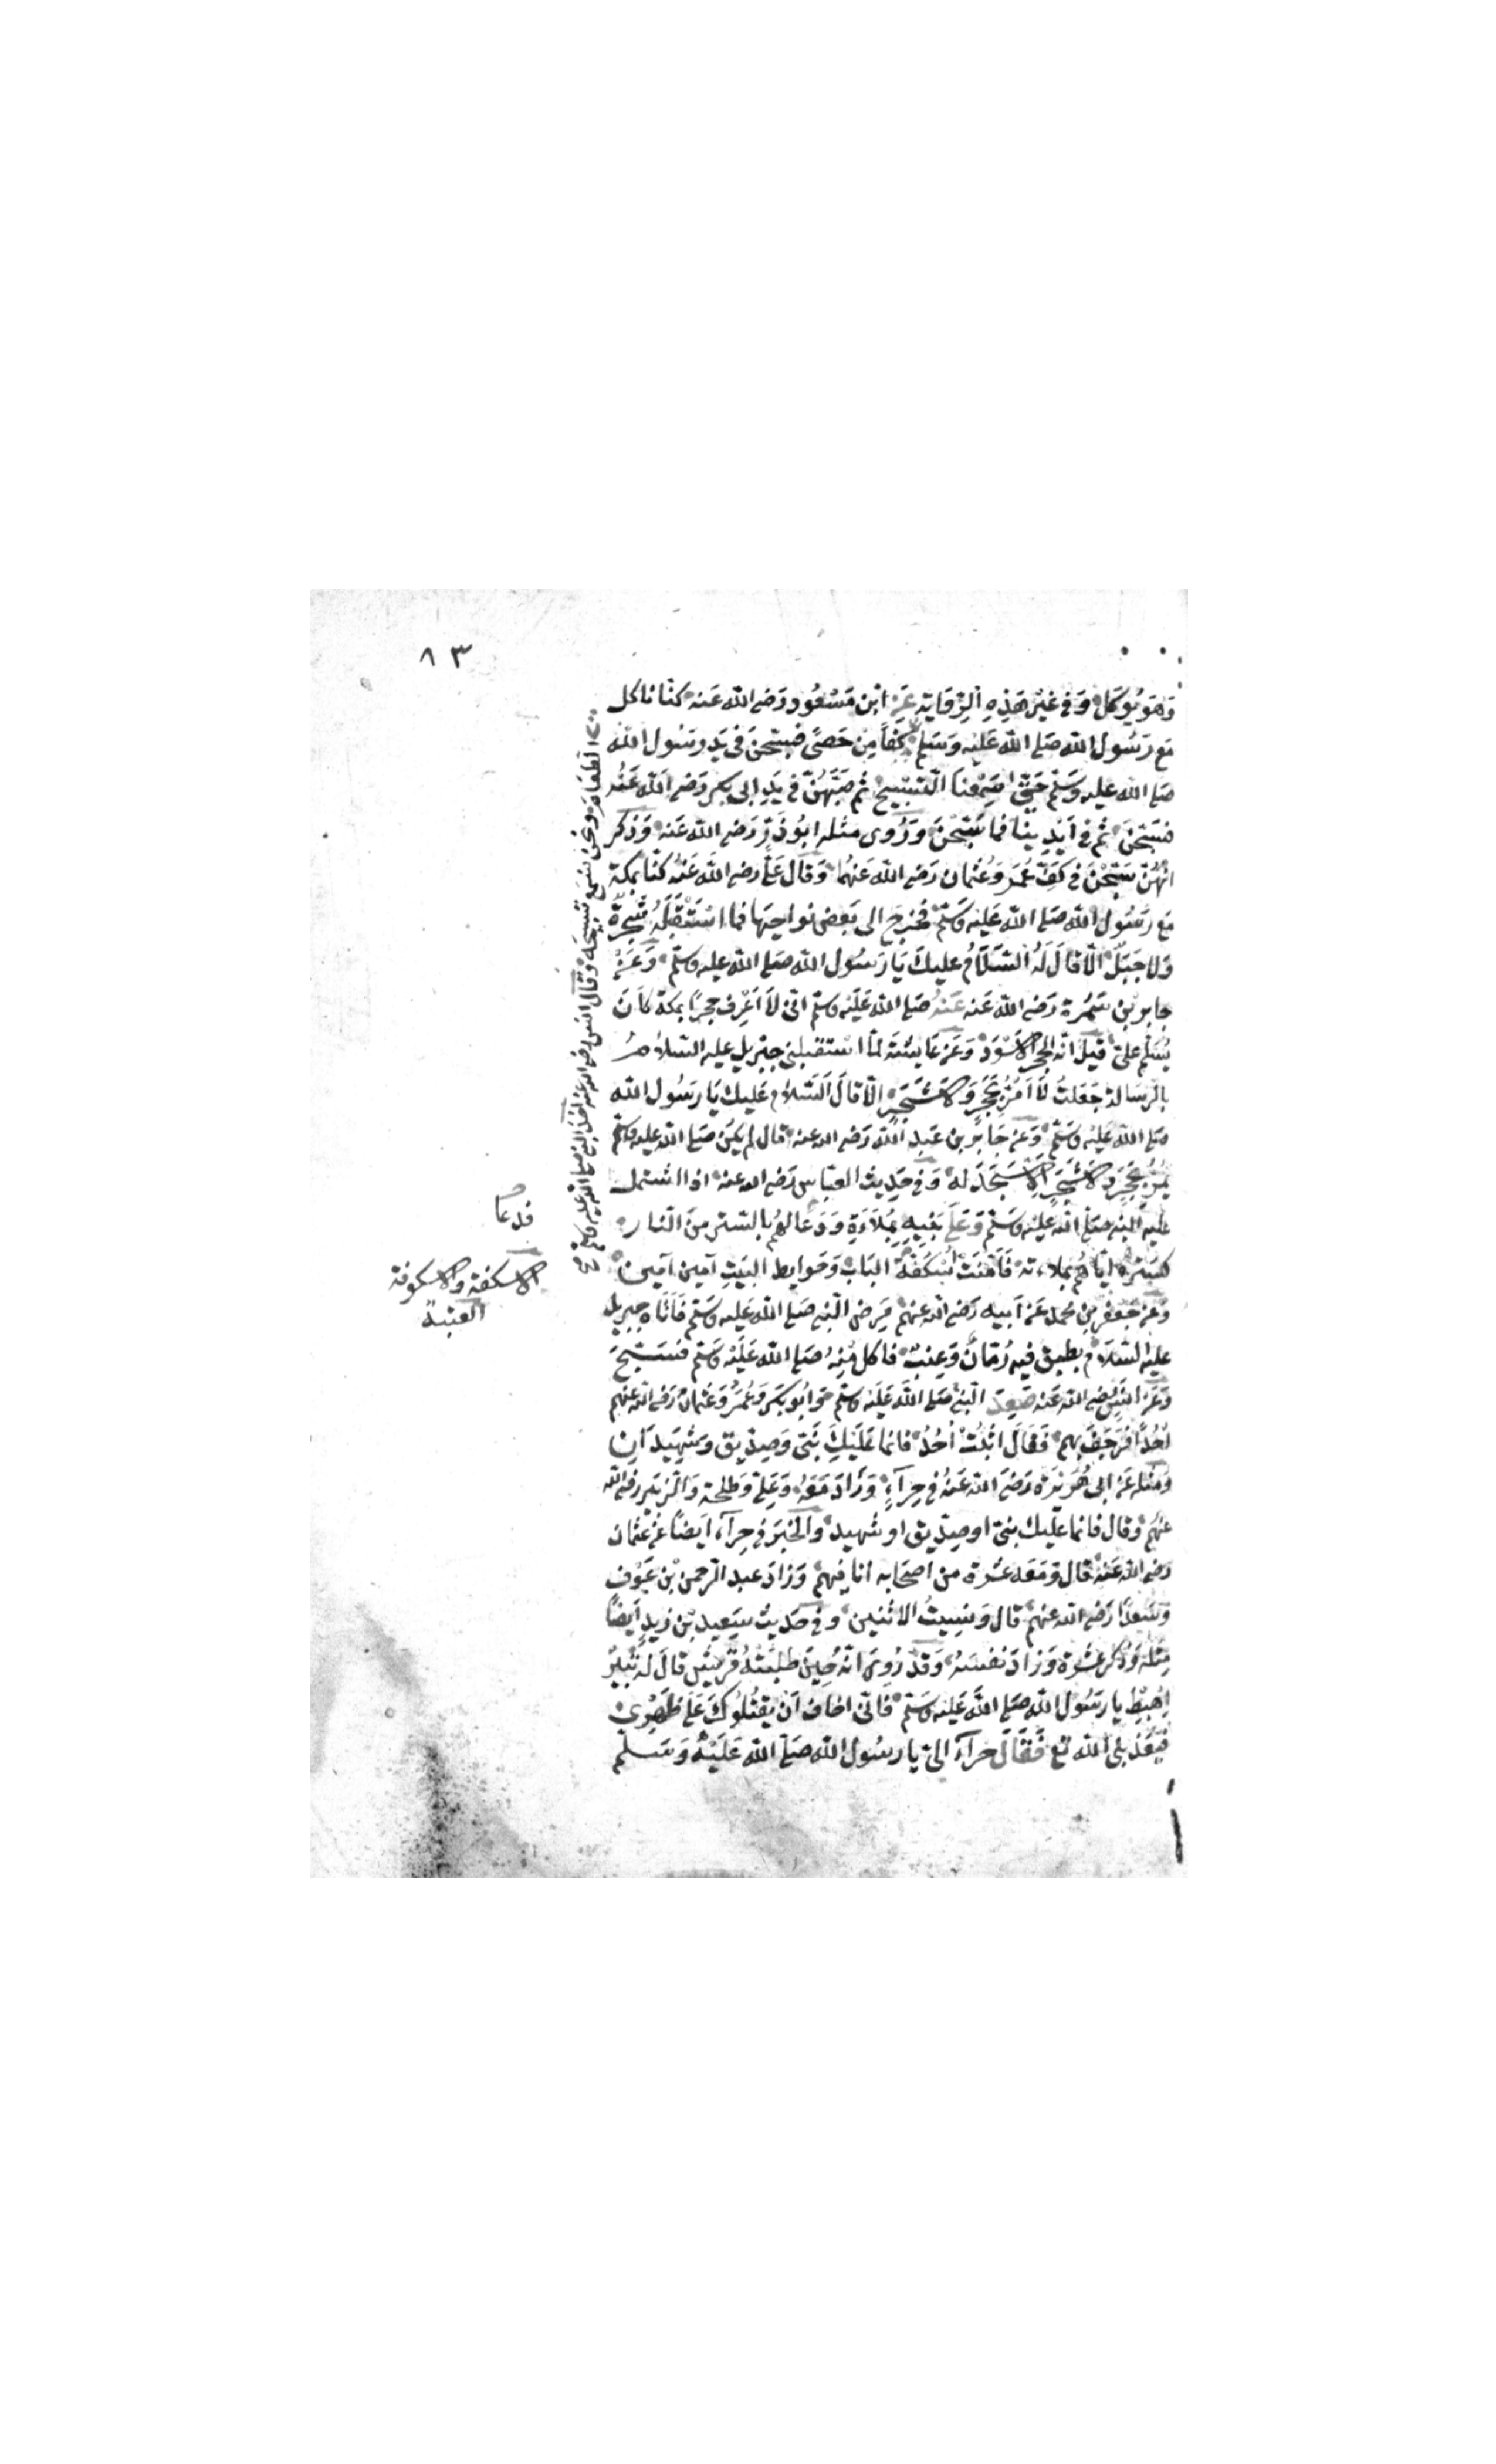 ٨٣
وَهوَ يُوكَلُ وَفى غَيْر هَذِهِ الرِّوَاية عَنِ ابْن مَسْعُود رَضى الله عَنه كنّا ناكل
مَع رَسُول الله صَلى الله عَليْه وَسَلم
الطعَامَ وَنحن نسمَع تسبيحَه وَقال انس رضى الله عنه اخذ النبى صلى الله عليه وسلم
كفّاً مِن حَصىً فسَبّحنَ فى يَدِ رسُول الله
صَلى الله عليه وَسَلّم حَتّى سَمِعْنا التسْبيح ثم صَبَّهُنّ فى يَدِ ابى بكر رَضى الله عَنْه
فسَبّحْنَ ثم فى اَيْدِينَا فما سَبّحْنَ وَرَوى مثله ابُو ذَرّ رَضى الله عَنه وَذكر
انّهُنّ سَبّحْنَ فى كَفّ عُمَر وَعُثمان رَضى الله عَنهُما وَقَال عَلىّ رضى الله عَنْه كنّا بمكة
مَع رَسُول الله صَلى الله عَليْه وَسَلّم فخرَج الى بَعض نواحيهَا فما اسْتَقْبَلَهُ شَجَرَةٌ
وَلا جَبَلٌ الّا قالَ لَهُ السَّلَامُ عليكَ يَا رَسُول الله صَلى الله عليه وسَلّم وَعَنْ
جابر بْن سَمُرة رَضى الله عَنه عَنهُ صَلى الله عَلَيْه وسَلّم انّى لاَ اَعْرِف حجرًا بمكة كاَنَ
يُسَلّم علىّ قيلَ انّه الحجر الاَسْوَد وَعَن عَايشَة لمّا اسْتقبلنى جبْريل عليه السّلامُ
بالرسَالة جَعَلتُ لاَ اَمُرّ بحَجَرٍ وَلاَ شَجَرٍ الّا قالَ اَلسّلام عَليك يَا رَسُول الله
صَلى الله عَليْه وَسَلّم وَعَن جَابِر بن عَبدِ الله رَضى الله عنه قال لم يكن صَلى الله عليه وسلم
يمُرّ بحَجَرٍ وَلاَ شَجَرٍ الاّ سَجَدَ له وَفى حَدِيث العبّاس رَضى الله عنه اذا اشتمل
عليه النبى صَلى الله عليْه وسَلّم وَعَلَى بَنِيهِ بمُلَاءَةٍ وَدَعَا لهُم بالسّتر مِنَ النّار
فدعا
كسَتْرِه ايّاهُم بملاءته فَأَمّنَتْ اُسْكفّة البَاب وَحَوايط البَيْتِ آمين آمين
الاسكفة والاسكوفة
العتبة
وَعَن جَعْفر بْن محمد عَن اَبيه رَضى الله عَنهم مَرِض النّبى صَلى الله عَليه وسَلّم فَاَتَاه جبريل
عليْه السّلَام بطبق فيه رُمّان وَعِنب فاكل مِنهُ صَلى الله عَليْه وَسَلم فسَبّحَ
وَعَن انَسٍ رَضى الله عَنه صَعِدَ النّبى صَلى الله عَلَيْه وسَلّم وَابُو بَكر وَعُمَرُ وَعُثمان رَضى الله عنهم
اُحُدًا فرَجَفَ بهم فَقَالَ اثبُتْ اُحُدُ فانما عَليْكَ نَبىّ وَصِدّيق وشَهِيدَانِ
وَمثله عَن ابى هُرَيْرَة رَضىَ الله عَنْهُ فى حِرآءٍ وَزَادَ مَعَهُ وَعَلِىّ وَطلحة وَالزبَيْر رضى الله
عَنْهُم وَقال فانما عليْك نبىّ او صِدّيق او شَهيد وَالخبَر فى حِرآء اَيْضًا عَن عثمان
رَضى الله عَنْهُ قال وَمَعَه عَشرة من اصحَابه انا فيهم وَزادَ عبد الرّحمن بْن عَوْفٍ
وَسَعدًا رَضى الله عنهم قال وَنسِيتُ الاثنين وفى حَديث سَعِيد بْن زيدٍ اَيضًا
مِثلَه وَذكر عَشرة وَزادَ نفسَهُ وَقدْ رُوِىَ انّه حِينَ طلبَتْهُ قُرَيش قالَ لهُ ثَبِيرٌ
اِهْبِطْ يا رَسُول الله صَلى الله عَليْه وَسَلّم فَاِنّى اخاف اَنْ يَقتُلُوكَ عَلى ظَهْرِى
فيُعَذّبنى الله تع فَقَالَ حِرآء الىّ يا رَسُول الله صَلى الله عَلَيْهِ وَسَلّم